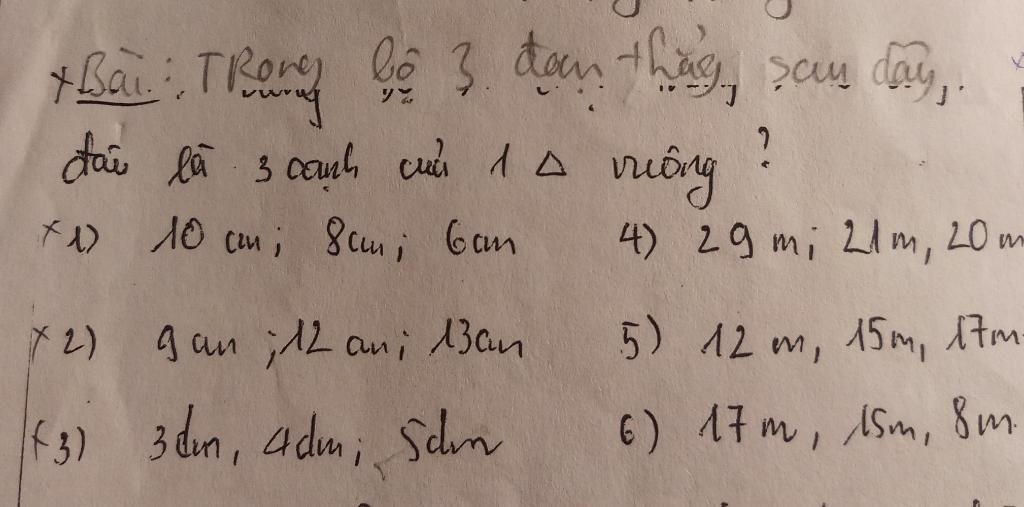 + Bài: Trong bộ 3 đoạn thẳng sau đây,
đâu là 3 cạnh của 1 Δ vuông?
x 1) 10 cm; 8cm; 6cm 4) 29 m; 21m, 20m
x 2) 9 cm; 12 cm; 13cm 5) 12 m, 15m, 17m
x 3) 3dm, 4dm; 5dm 6) 17m, 15m, 8m.